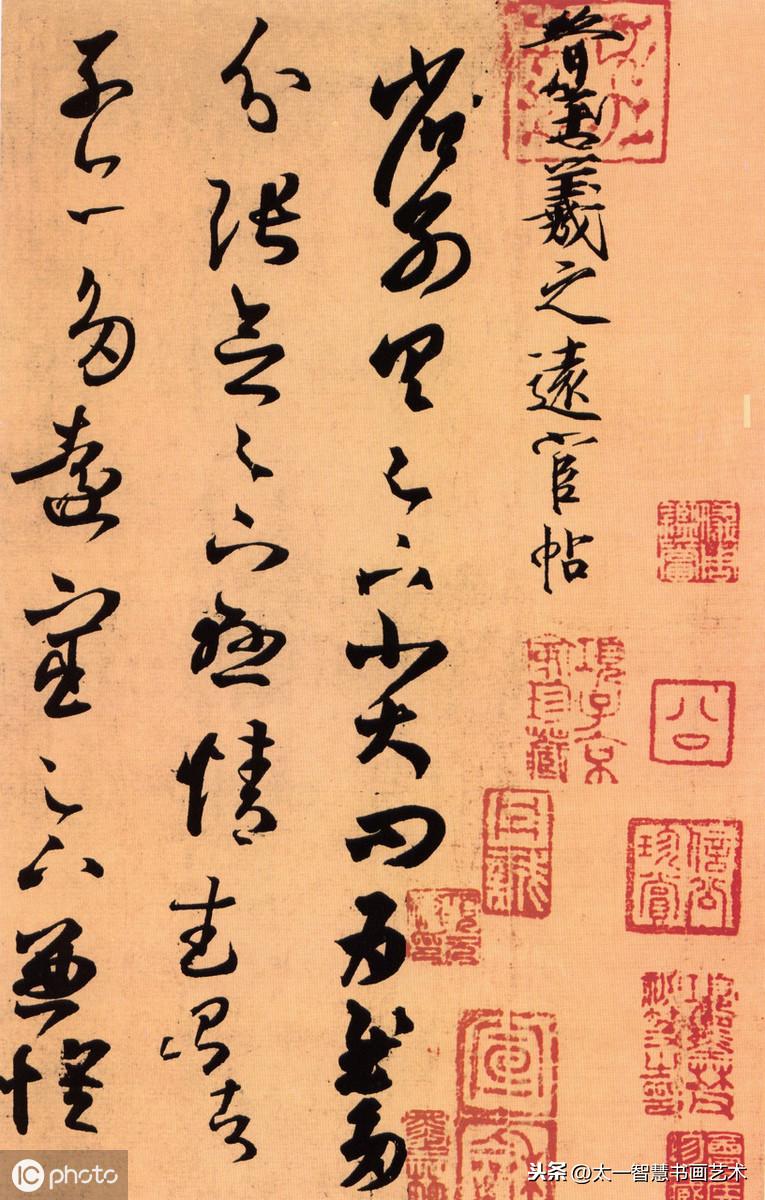 晉王羲之遠宦帖
省別具足下小大問為慰多
分張念足下懸情武昌諸
子亦多遠宦足下兼懷
項子京家珍藏
公
信公珍賞
iC photo
头条 @太一智慧书画艺术